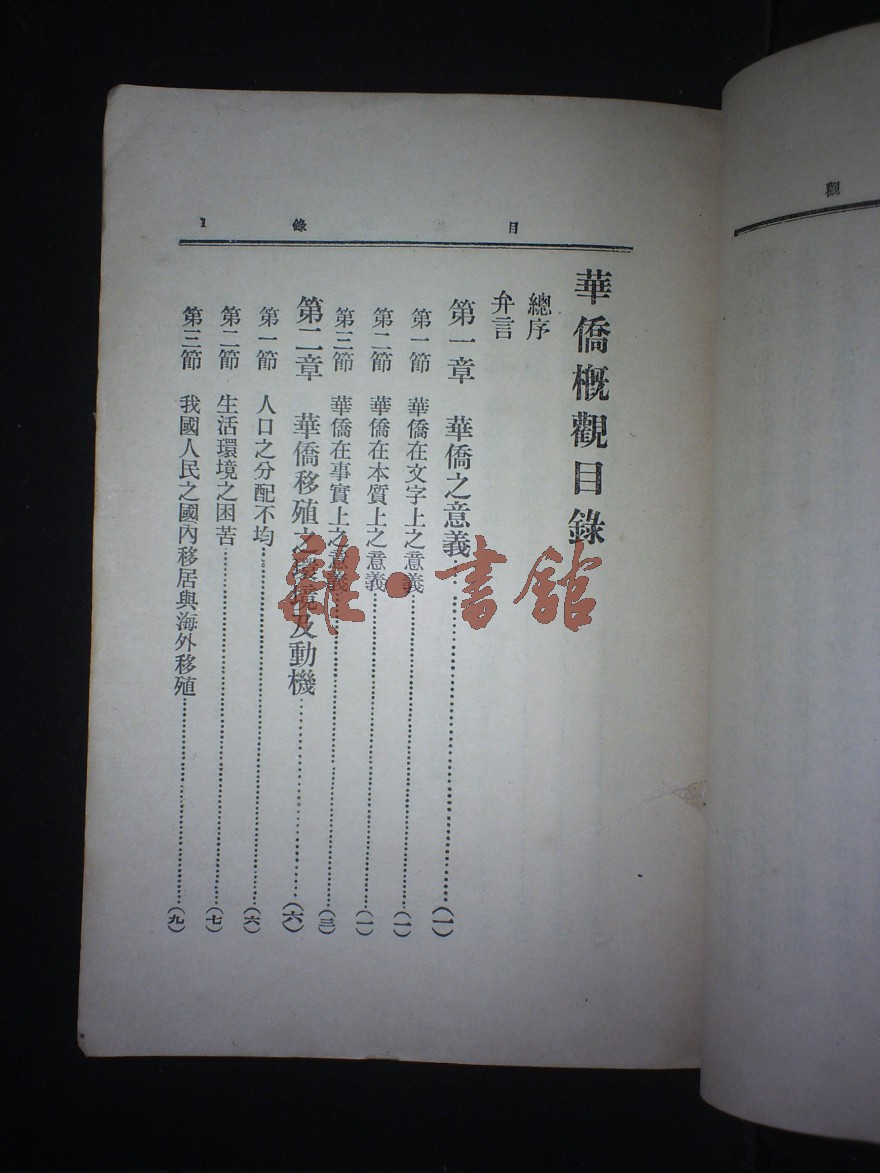 觀
目錄 1
華僑概觀目錄
總序
弁言
第一章 華僑之意義…………(一)
第一節 華僑在文字上之意義…………(一)
第二節 華僑在本質上之意義…………(一)
第三節 華僑在事實上之意義…………(三)
第二章 華僑移殖之環境及動機…………(六)
第一節 人口之分配不均…………(六)
第二節 生活環境之困苦…………(七)
第三節 我國人民之國內移居與海外移殖…………(九)
雜·書館